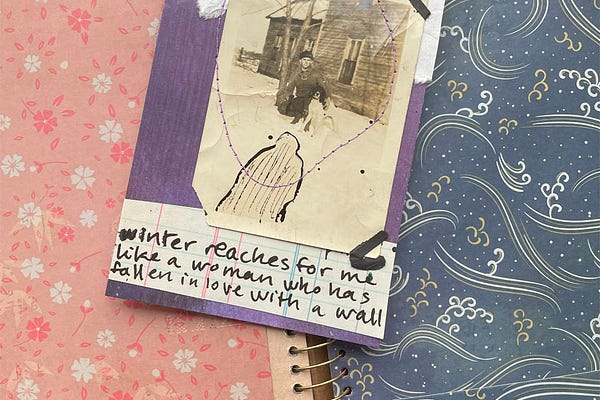 winter reaches for me
like a woman who has
fallen in love with a wall